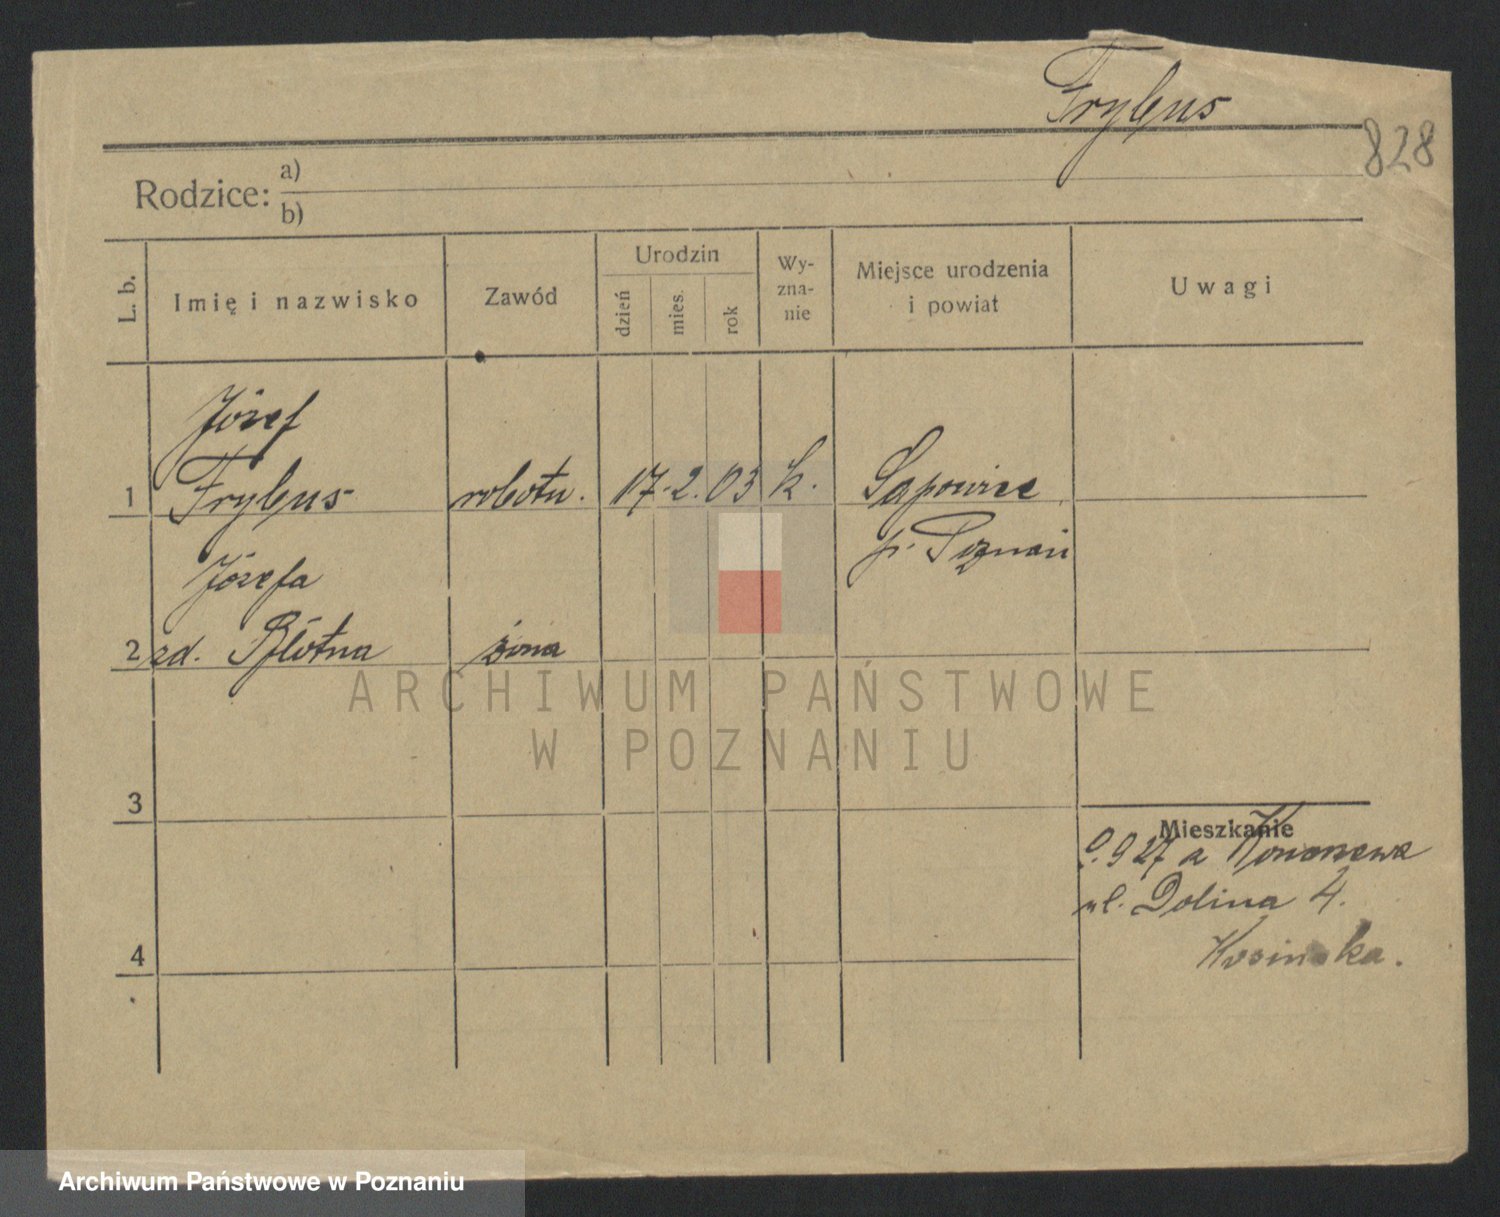 Frybus
828
Rodzice: a)
b)
L. b.
Imię i nazwisko
Zawód
Urodzin
dzień
mies.
rok
Wy-
zna-
nie
Miejsce urodzenia
i powiat
Uwagi
Józef
1 Frybus robotn. 17. 2. 03 k. Sapowice
p. Poznań
Józefa
2 zd. Błotna żona
3
4
Mieszkanie
9. 9 27 a
ul. Dolina 4.
Kosińska.
ARCHIWUM PAŃSTWOWE
W POZNANIU
Archiwum Państwowe w Poznaniu